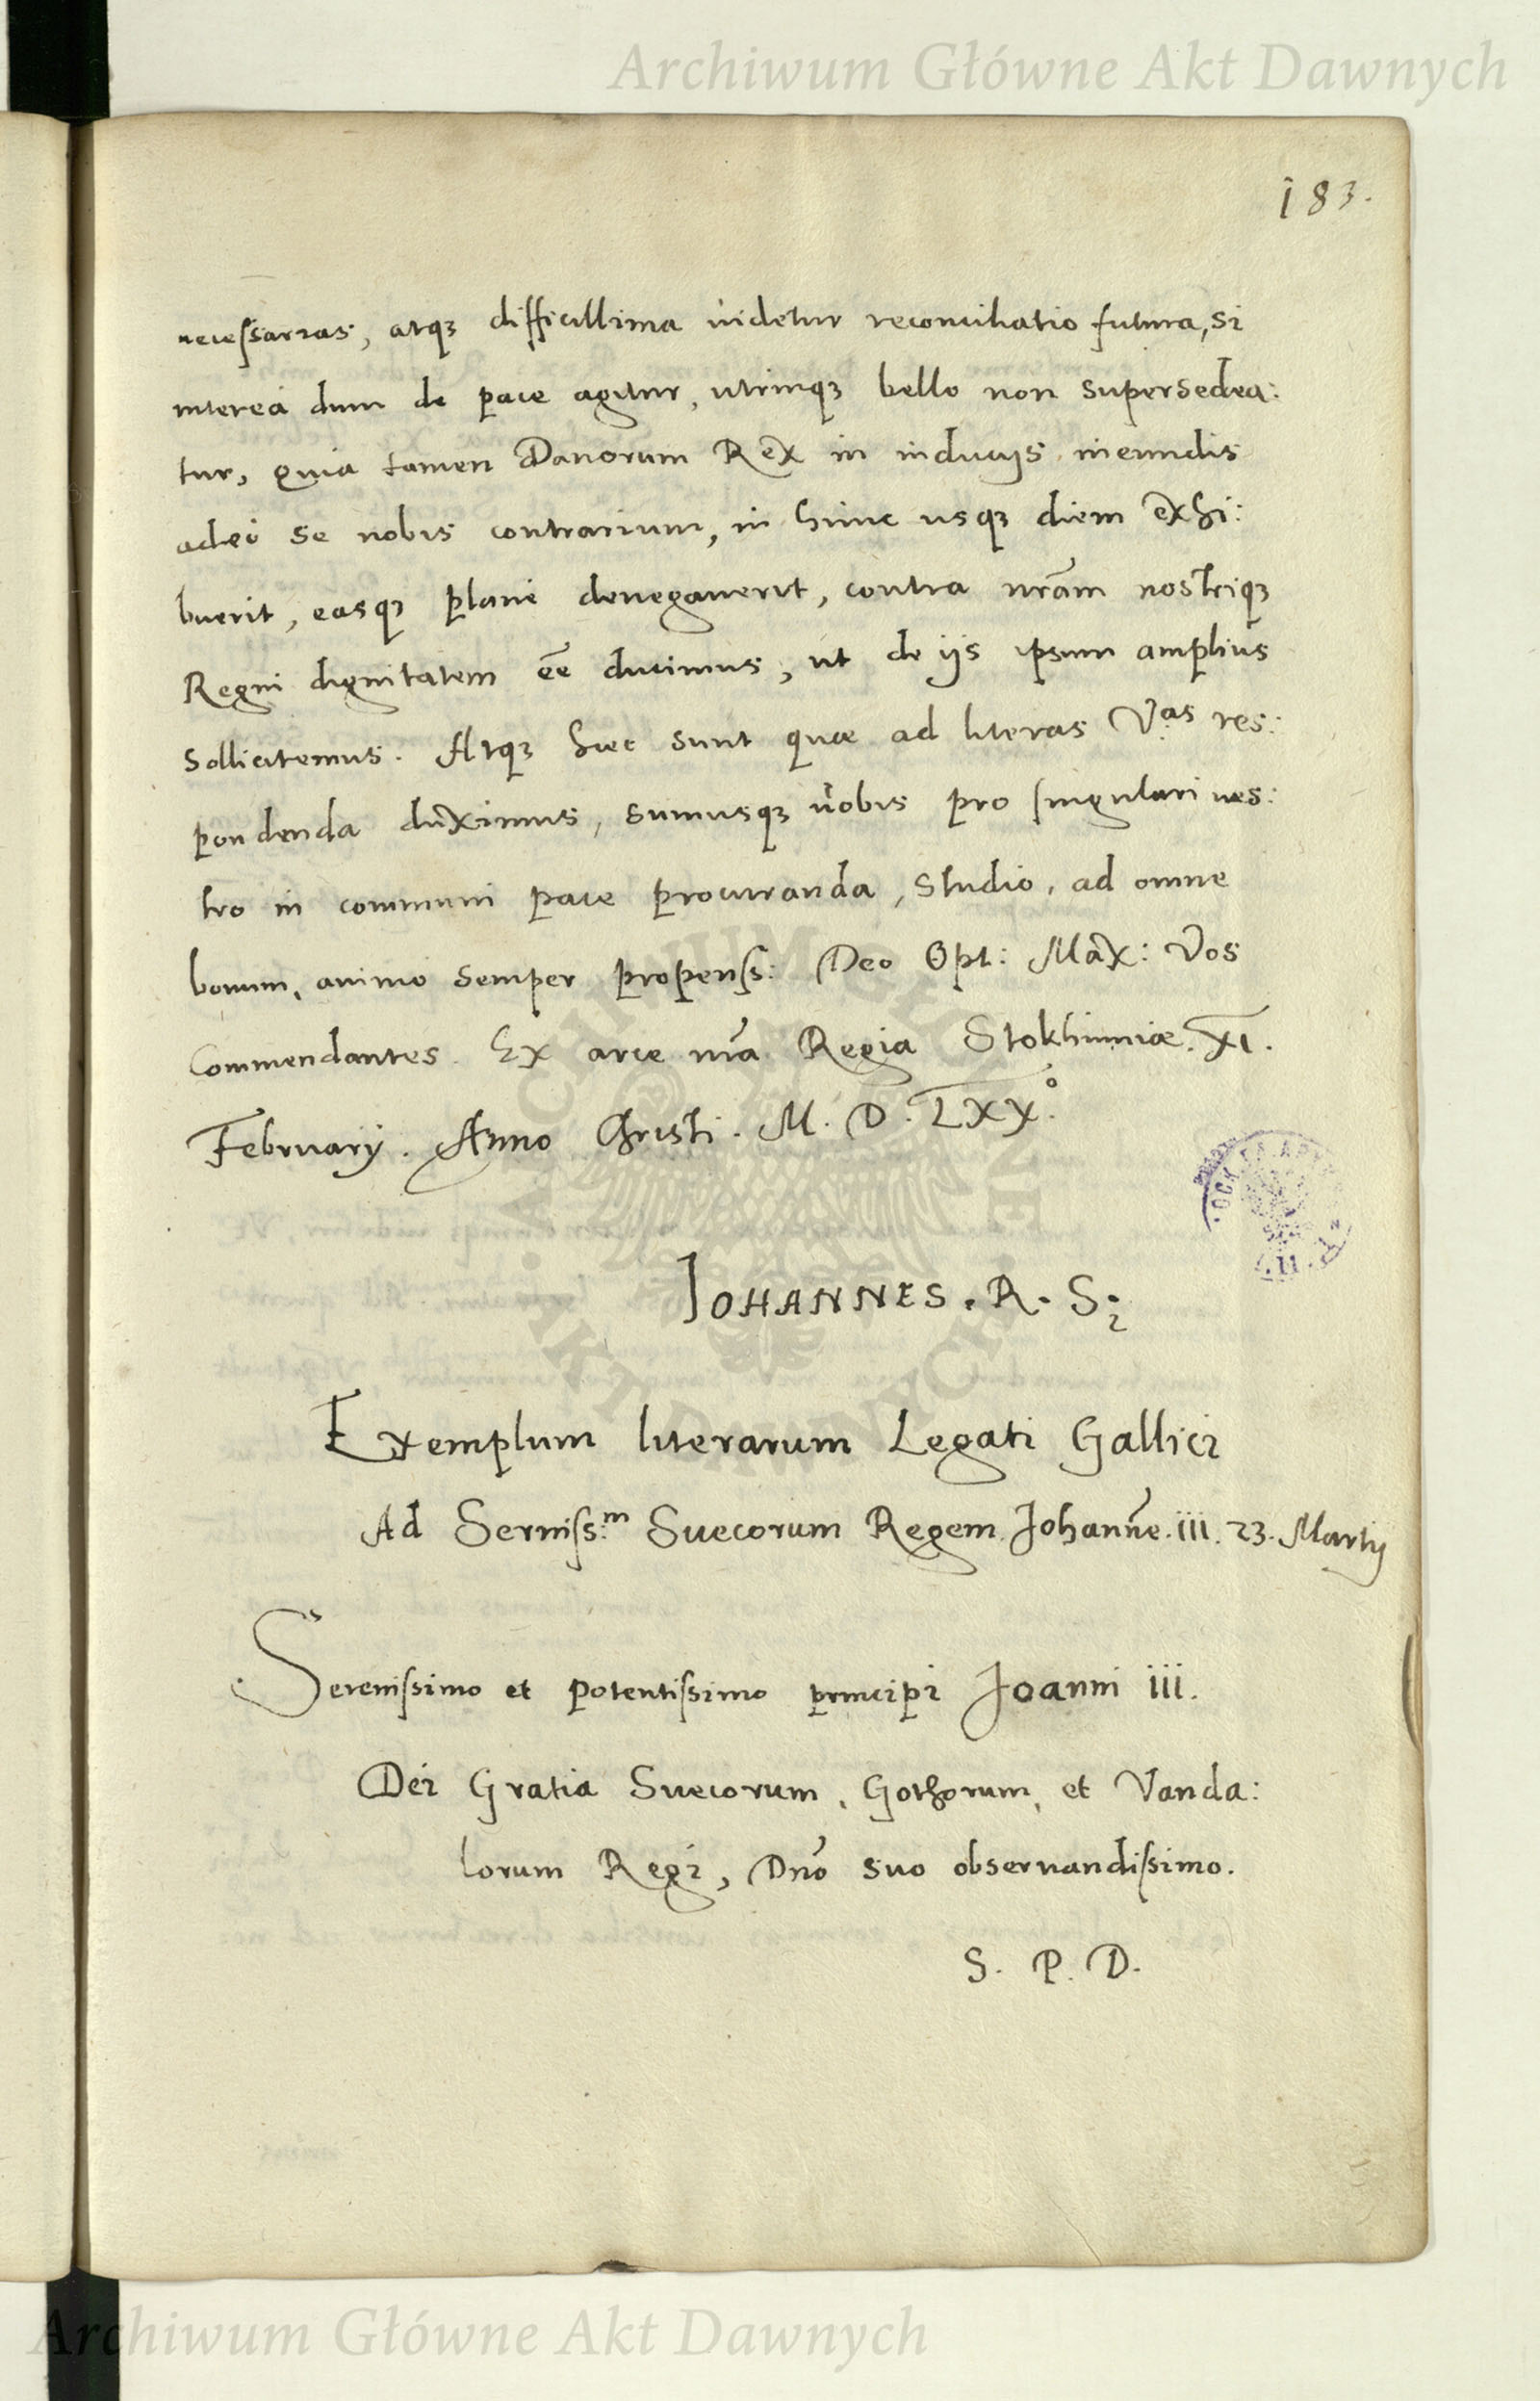 Archiwum Główne Akt Dawnych
183.
necessarias, atqꝫ difficillima uidetur reconciliatio futura, si
interea dum de pace agitur, utrinqꝫ bello non supersedea:
tur, quia tamen Danorum Rex in inducijs ineundis
adeò se nobis contrarium, in hunc usqꝫ diem exhi:
buerit, easqꝫ planè denegauerit, contra nr̃am nostriqꝫ
Regni dignitatem eẽ ducimus, ut de ijs ipsum amplius
sollicitemus. Atqꝫ haec sunt quae ad literas Vas res:
pondenda duximus, sumusqꝫ uobis pro singulari ues:
tro in communi pace procuranda, studio, ad omne
bonum, animo semper propens: Deo Opt: Max: Vos
Commendantes. Ex arce nr̃a Regia Stokhimiae. XI.
February. Anno Christi. M. D. LXX°.
IOHANNES. R. S;
Exemplum literarum Legati Gallici
Ad Serniss:m Suecorum Regem Johannẽ. iii. 23. Martij
Serenissimo et potentissimo principi Joanni iii.
Dei Gratia Suecorum, Gothorum, et Vanda:
lorum Regi, Dnõ suo obseruandissimo.
S. P. D.
Archiwum Główne Akt Dawnych